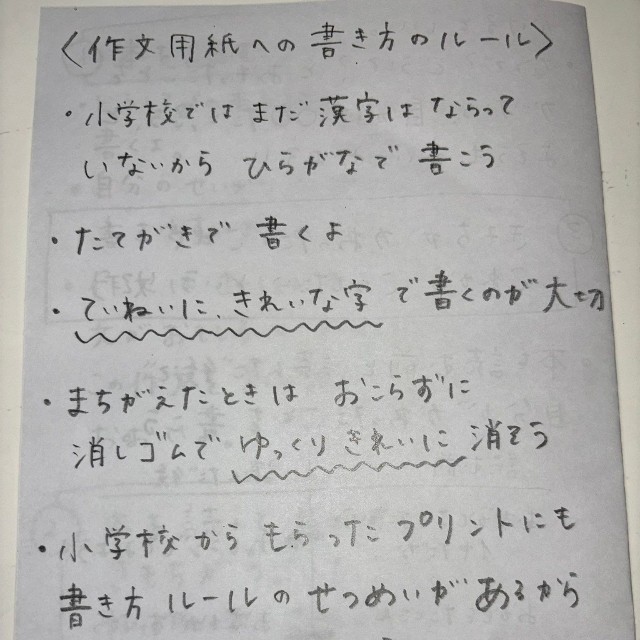 〈作文用紙への書き方のルール〉
・小学校ではまだ漢字はならって
いないから ひらがなで 書こう
・たてがきで 書くよ
・ていねいに、きれいな字 で書くのが大切
・まちがえたときは おこらずに
消しゴムで ゆっくり きれいに 消そう
・小学校から もらった プリントにも
書き方 ルールの せつめいが あるから